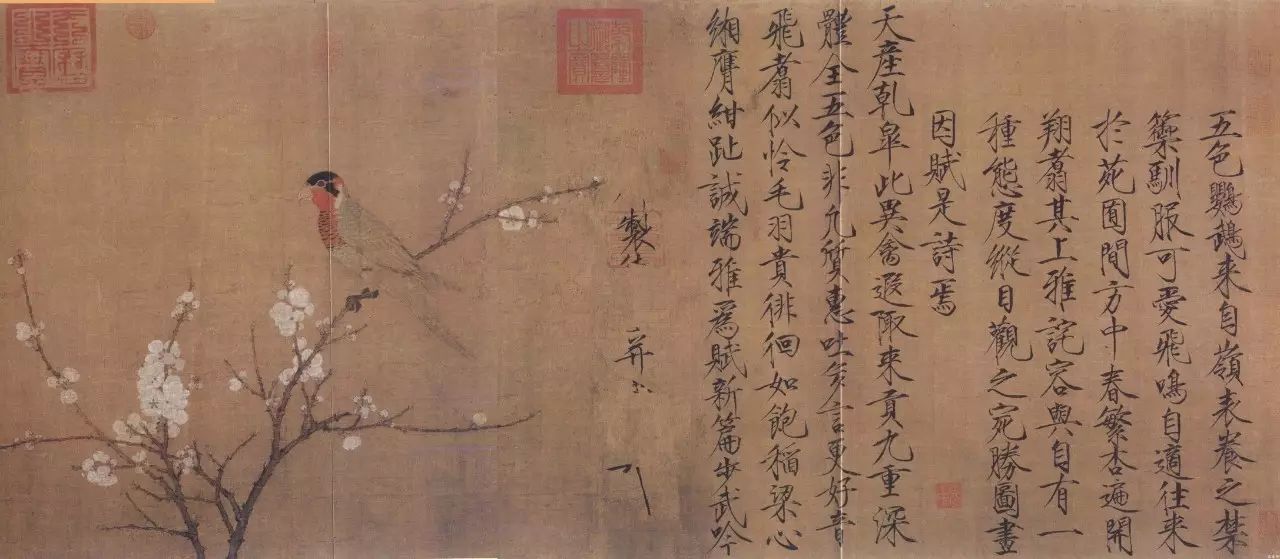 五色鸚鵡來自嶺表養之禁
籞馴服可愛飛鳴自適往來
於苑囿間方中春繁杏遍開
翔翥其上雅詫容與自有一
種態度縱目觀之宛勝圖畫
因賦是詩焉
天產乾皐此異禽遐陬來貢九重深
體全五色非凡質惠吐多言更好音
飛翥似憐毛羽貴徘徊如飽稻粱心
緗膺紺趾誠端雅為賦新篇步武吟
製 并